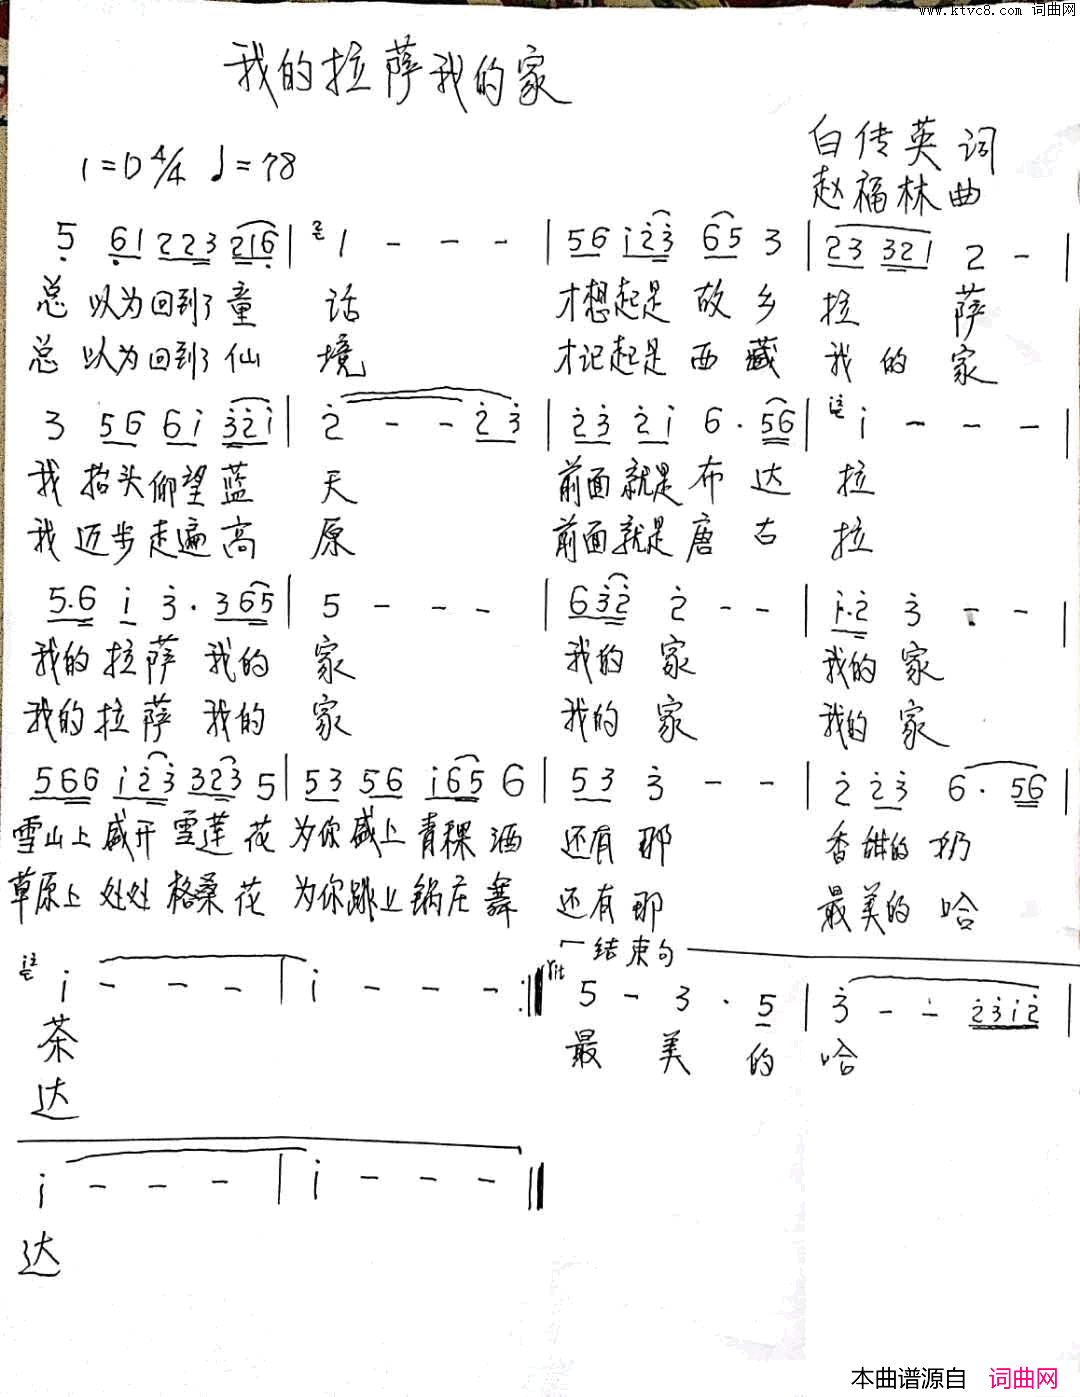 www.ktvc8.com 词曲网
我的拉萨我的家
白传英 词
1=D 4/4 ♩=78
赵福林 曲
5 61 223 216 | 1 - - - | 56 i23 65 3 | 23 321 2 - |
总 以为回到了童 话 才想起是 故 乡 拉 萨
总 以为回到了仙 境 才记起是 西 藏 我 的 家
3 56 6i 32i | 2 - - 23 | 23 2i 6. 56 | i - - - |
我 抬头仰望蓝 天 前面就是布 达 拉
我 迈步走遍高 原 前面就是唐 古 拉
5.6 i 3. 365 | 5 - - - | 632 2 - - | i.2 3 - - |
我的拉萨 我的 家 我的 家 我的 家
我的拉萨 我的 家 我的 家 我的 家
566 i23 323 5 | 53 56 i65 6 | 53 3 - - | 2 23 6. 56 |
雪山上盛开雪莲 花 为你盛上青稞 酒 还有 那 香甜的 奶
草原上 处处 格桑 花 为你跳上锅庄 舞 还有 那 最美的 哈
i - - - | i - - - :‖ rit 结束句 5 - 3 . 5 | 3 - - 23i2 |
茶 最 美 的 哈
达
i - - - | i - - - ‖
达
本曲谱源自 词曲网